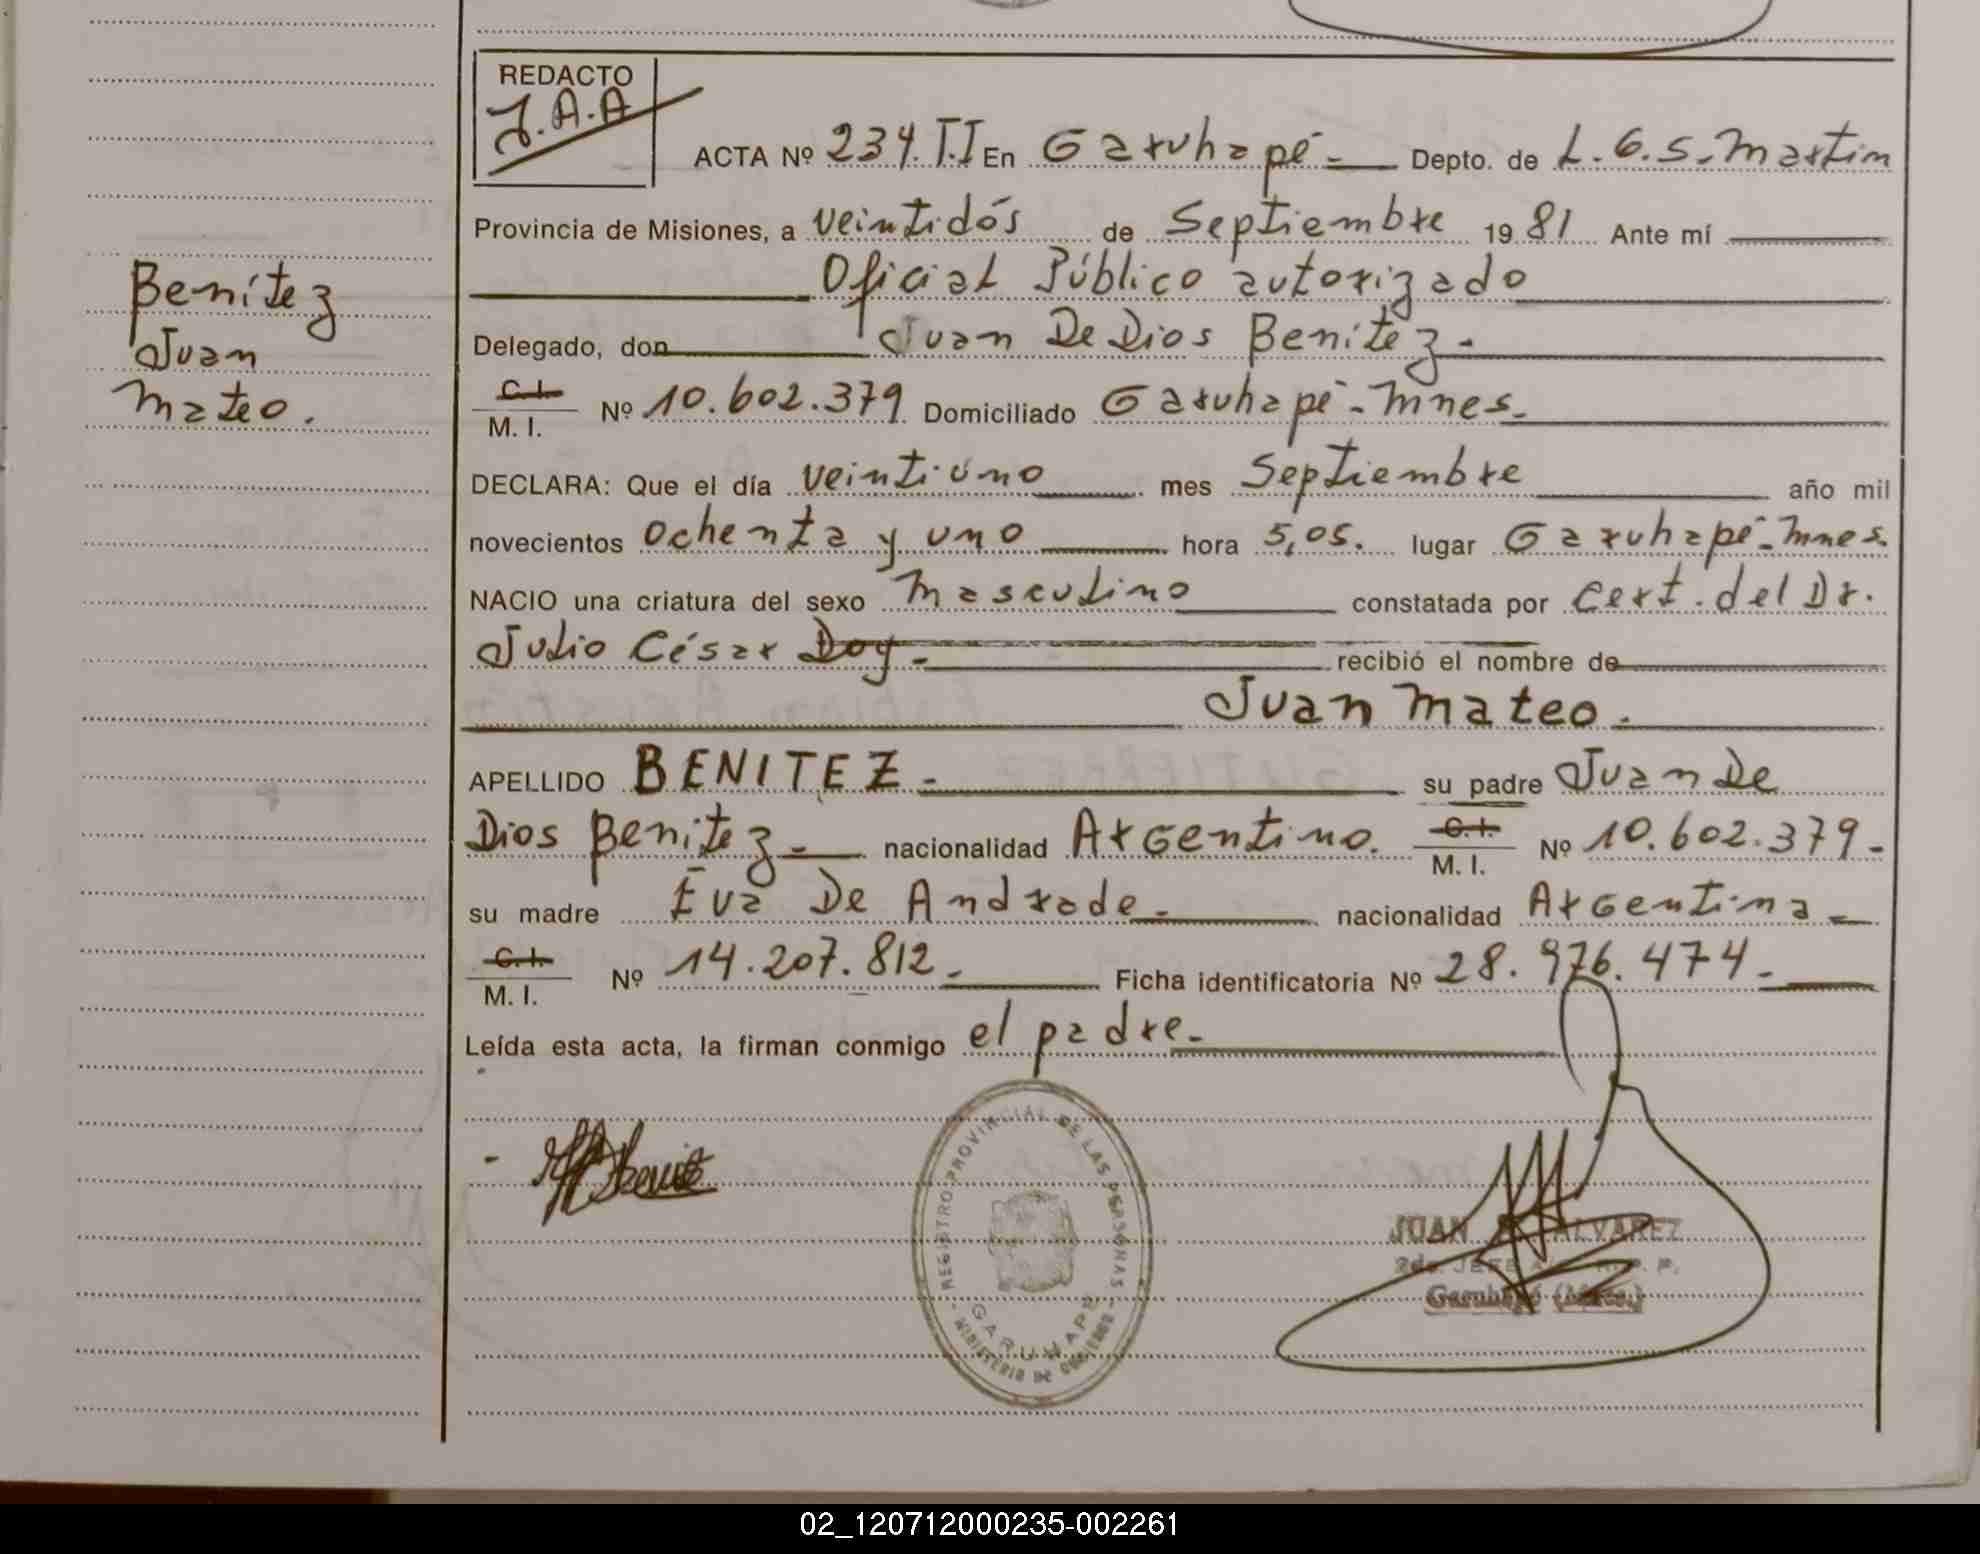 REDACTO
J.A.A
ACTA Nº 234.T.I En Garuhapé - Depto. de L.G.S. Martin
Provincia de Misiones, a veintidós de Septiembre 1981 Ante mí
Oficial Público autorizado
Delegado, don Juan De Dios Benítez.-
C.I. M.I. Nº 10.602.379 Domiciliado Garuhapé - Mnes.
DECLARA: Que el día veintiúno mes Septiembre año mil
novecientos ochenta y uno hora 5,05. lugar Garuhapé - Mnes.
NACIO una criatura del sexo Masculino constatada por Cert. del Dr.
Julio César Doy.- recibió el nombre de
Juan Mateo.
APELLIDO BENITEZ.- su padre Juan De
Dios Benítez.- nacionalidad Argentino. C.I. M.I. Nº 10.602.379.-
su madre Eva De Andrade.- nacionalidad Argentina -
C.I. M.I. Nº 14.207.812.- Ficha identificatoria Nº 28.976.474.-
Leída esta acta, la firman conmigo el padre.-
Benítez
Juan
Mateo.
REGISTRO PROVINCIAL DE LAS PERSONAS
GARUHAPE
MINISTERIO DE GOBIERNO
JUAN ALVAREZ
2do. JEFE
Garuhapé (Mnes.)
02_120712000235-002261